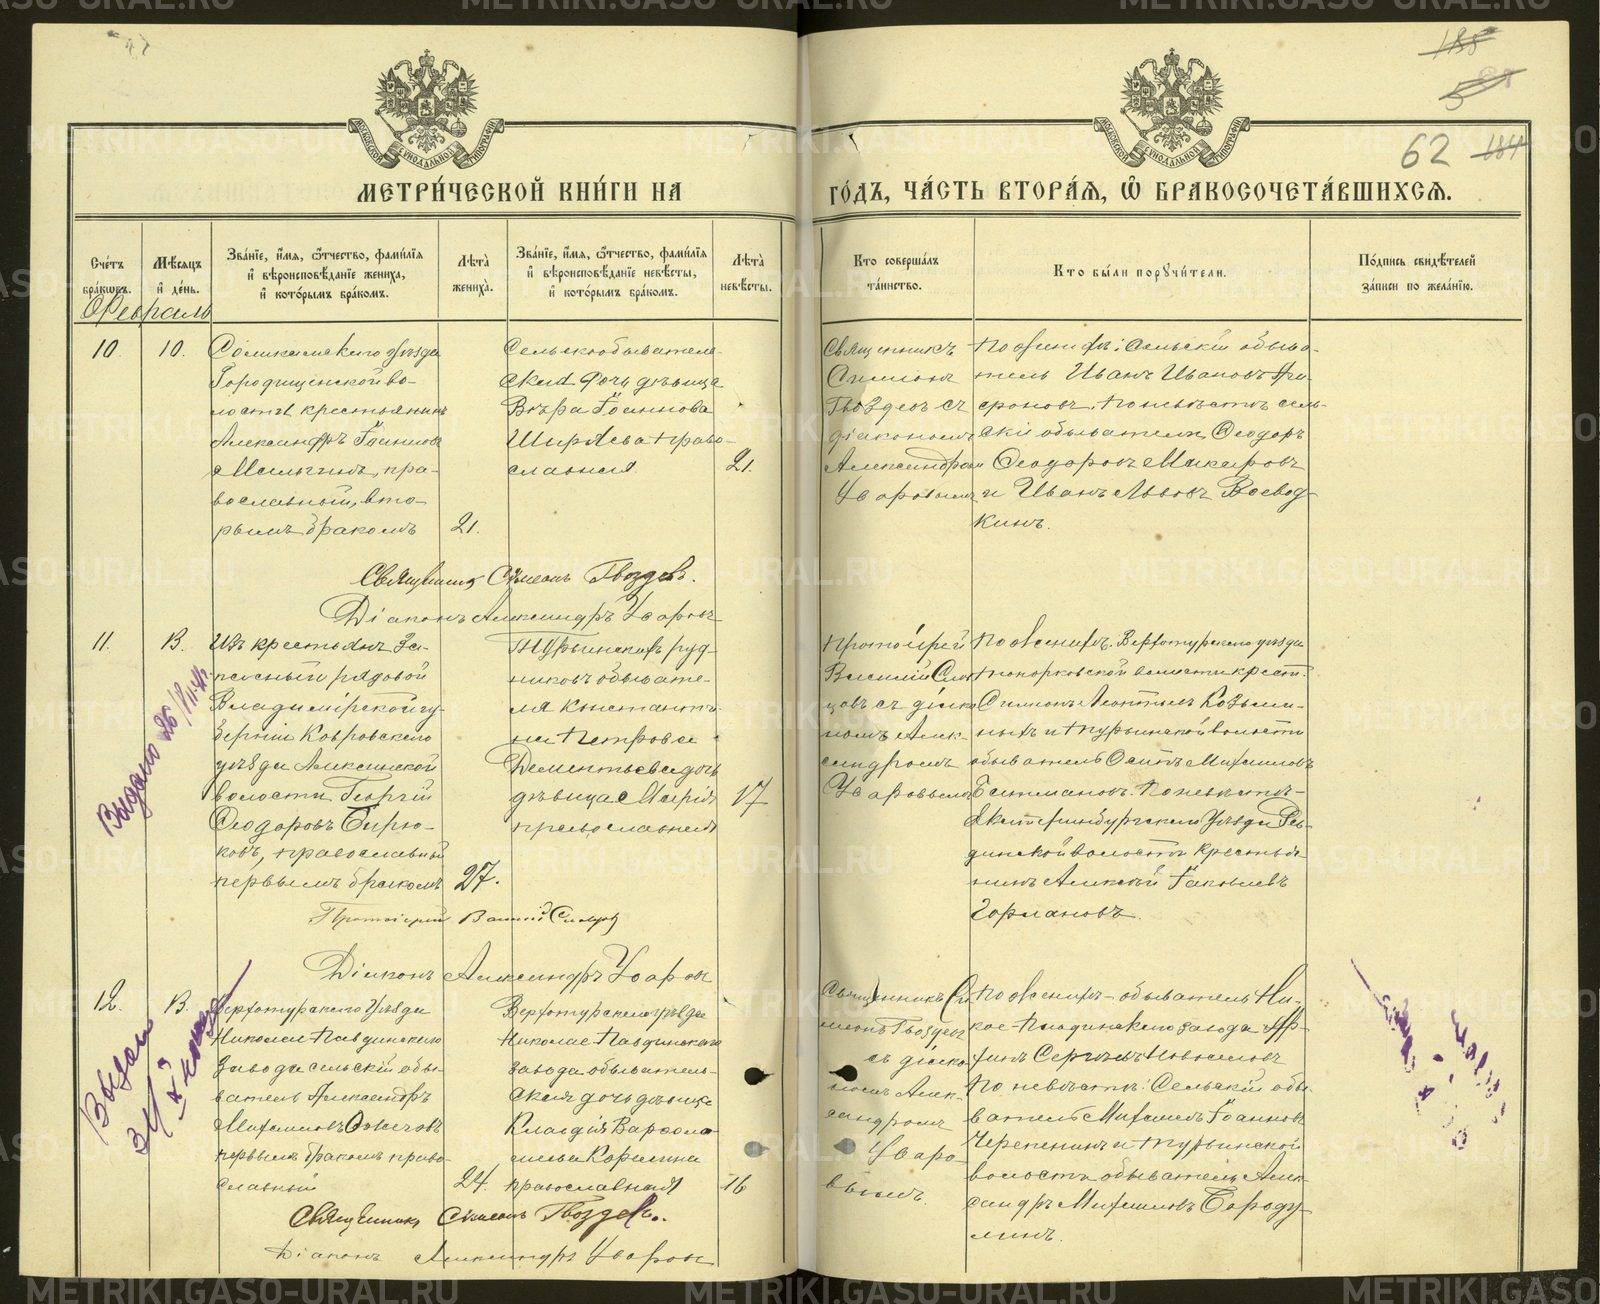 62
МЕТРИ́ЧЕСКОЙ КНИ́ГИ НА
ГО́ДЪ, ЧА́СТЬ ВТОРА́Я, Ѿ БРАКОСОЧЕТА́ВШИХСЯ.
Сче́тъ бра́ковъ.
Мѣ́сяцъ и҆ де́нь.
Зва́нїе, и҆́мя, ѻ҆́тчество, фами́лїя
и҆ вѣроисповѣ́данїе жениха̀,
и҆ кото́рымъ бра́комъ.
Лѣта̀ жениха̀.
Зва́нїе, и҆́мя, ѻ҆́тчество, фами́лїя
и҆ вѣроисповѣ́данїе невѣ́сты,
и҆ кото́рымъ бра́комъ.
Лѣта̀ невѣ́сты.
Кто соверша́лъ та́инство.
Кто бы́ли поручи́тели.
По́дпись свидѣ́телей за́писи по жела́нїю.
Февраль
10.
10.
Соликамскаго уѣзда
Городищенской во-
лости крестьянинъ
Александръ Іоанновъ
пра-
вославный, вто-
рымъ бракомъ
21.
Сельскообывателе-
ская дочь дѣвица
Вѣра Іоаннова
Ширяева право-
славная
21.
Священникъ
Симеонъ
Гвоздевъ съ
діакономъ
Александромъ
Уваровымъ
По женихѣ: Сельскій обыва-
тель Иванъ Ивановъ
По невѣстѣ сель-
скіе обыватели Ѳеодоръ
Ѳеодоровъ Макаровъ
и Иванъ Львовъ Воевод-
кинъ.
Священникъ Симеонъ Гвоздевъ.
Діаконъ Александръ Уваровъ
11.
13.
Изъ крестьянъ За-
пасный рядовой
Владимірской гу-
берніи Ковровскаго
уѣзда Алексинской
волости Георгій
Ѳеодоровъ Бирю-
ковъ, православный
первымъ бракомъ
27.
Турьинскихъ руд-
никовъ обывате-
ля Константи-
на Петрова
Дементьева дочь
дѣвица Марія
православная
17
Протоіерей
Василій Сло-
цовъ съ діако-
номъ Алек-
сандромъ
Уваровымъ
По женихѣ: Верхотурскаго уѣзда
Топорковской волости крест.
Симеонъ Леонтьевъ Козьми-
ныхъ и Турьинской волости
обыватель Осипъ Михаиловъ
По невѣстѣ-
Екатеринбургскаго Уѣзда Ре-
динской волости крестья-
нинъ Алексѣй Іаковлевъ
Гормановъ.
Выдано 26/
Протоіерей Василій Словцовъ
Діаконъ Александръ Уваровъ
12.
13.
Верхотурскаго Уѣзда
Николае-Павдинскаго
завода сельскій обы-
ватель Александръ
Михаиловъ Ожеговъ
первымъ бракомъ право-
славный
24.
Верхотурскаго уѣзда
Николае-Павдинскаго
завода обыватель-
ская дочь дѣвица
Клавдія Варѳоло-
меева Карелина
православная
16
Священникъ Си-
меонъ Гвоздевъ
съ діако-
номъ Алек-
сандромъ
Уваро-
вымъ
По женихѣ-обыватель Ни-
кол. Павдинскаго завода
Сергѣевъ Новоселовъ
По невѣстѣ: Сельскій обы-
ватель Михаилъ Іоанновъ
Черепенинъ и Турьинской
волости обыватель Алек-
сандръ Михаиловъ Бороду-
линъ.
Священникъ Симеонъ Гвоздевъ.
Діаконъ Александръ Уваровъ
METRIKI.GASO-URAL.RU